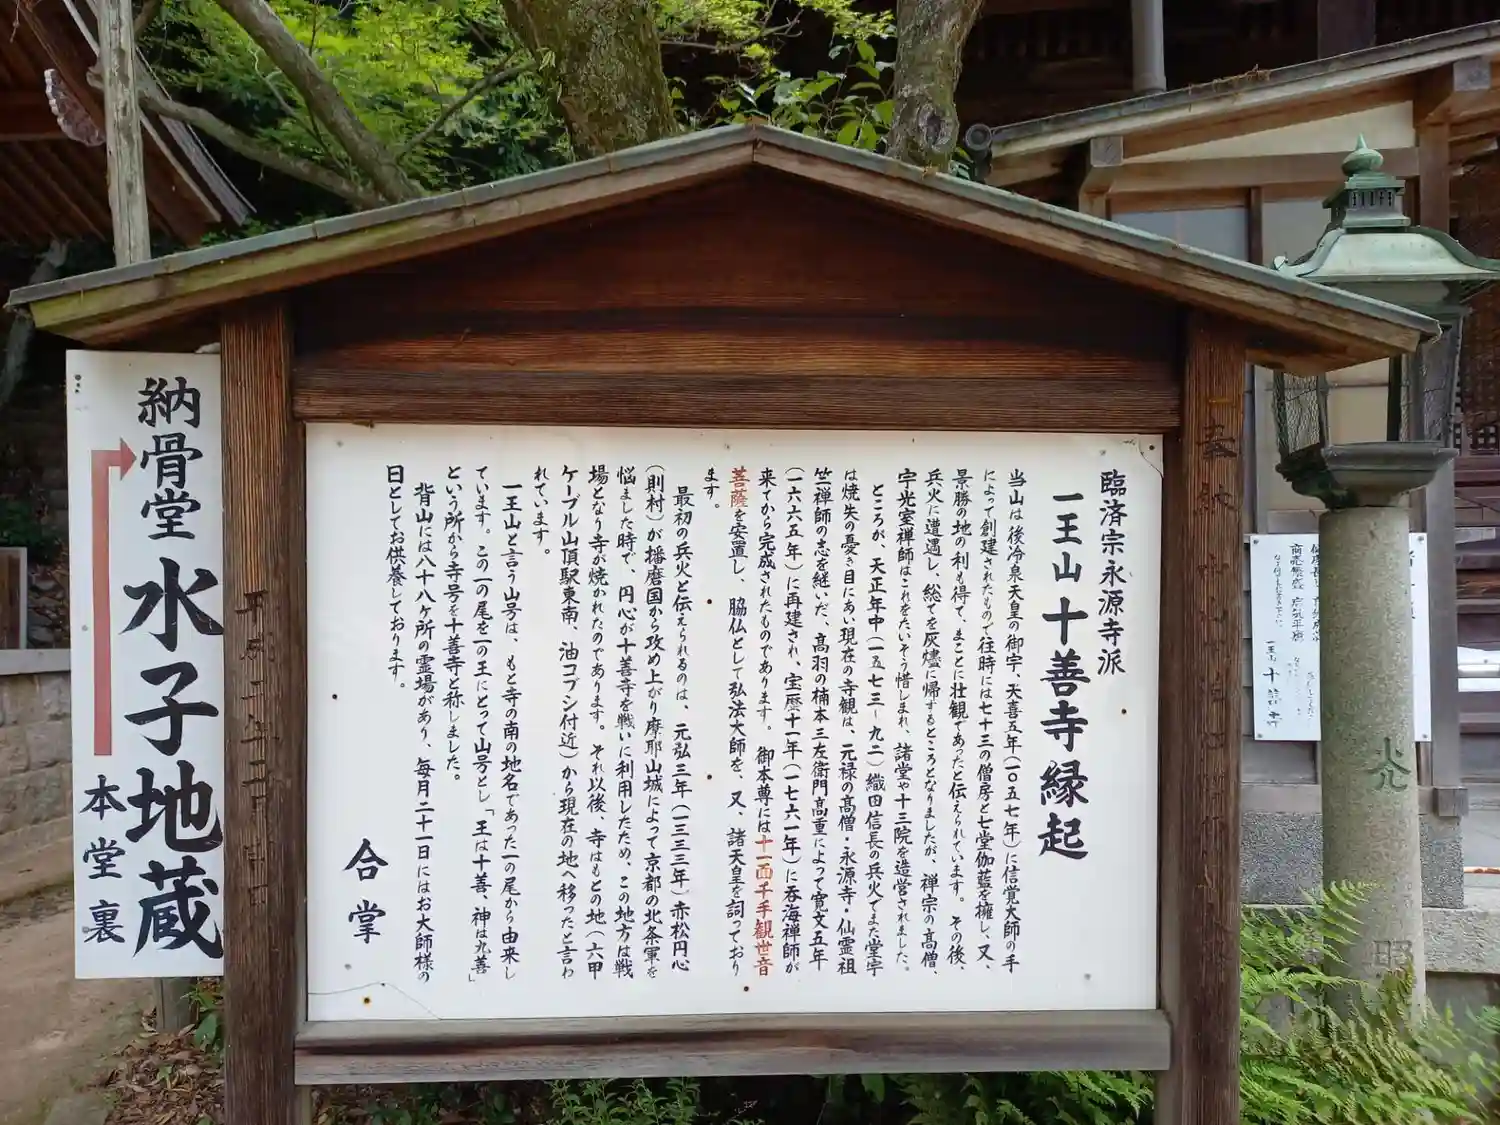 臨済宗永源寺派
一王山十善寺縁起
当山は後冷泉天皇の御宇、天喜五年(一〇五七年)に信覚大師の手
によって創建されたもので往時には七十三の僧房と七堂伽藍を擁し、又、
景勝の地の利も得て、まことに壮観であったと伝えられています。その後、
兵火に遭遇し、総てを灰燼に帰するところとなりましたが、禅宗の高僧、
宇光室禅師はこれをたいそう惜しまれ、諸堂や十三院を造営されました。
ところが、天正年中(一五七三〜九二)織田信長の兵火でまた堂宇
は焼失の憂き目にあい現在の寺観は、元禄の高僧・永源寺・仙霊祖
竺禅師の志を継いだ、高羽の楠本三左衛門高重によって寛文五年
(一六六五年)に再建され、宝暦十一年(一七六一年)に呑海禅師が
来てから完成されたものであります。御本尊には十一面千手観世音
菩薩を安置し、脇仏として弘法大師を、又、諸天皇を詞っており
ます。
最初の兵火と伝えられるのは、元弘三年(一三三三年)赤松円心
(則村)が播磨国から攻め上がり摩耶山城によって京都の北条軍を
悩ました時で、円心が十善寺を戦いに利用したため、この地方は戦
場となり寺が焼かれたのであります。それ以後、寺はもとの地(六甲
ケーブル山頂駅東南、油コブシ付近)から現在の地へ移ったと言わ
れています。
一王山と言う山号は、もと寺の南の地名であった一の尾から由来し
ています。この一の尾を一の王にとって山号とし「王は十善、神は九善」
という所から寺号を十善寺と称しました。
背山には八十八ヶ所の霊場があり、毎月二十一日にはお大師様の
日としてお供養しております。
合掌
納骨堂
水子地蔵
本堂裏
商売繁盛
一王山十善寺